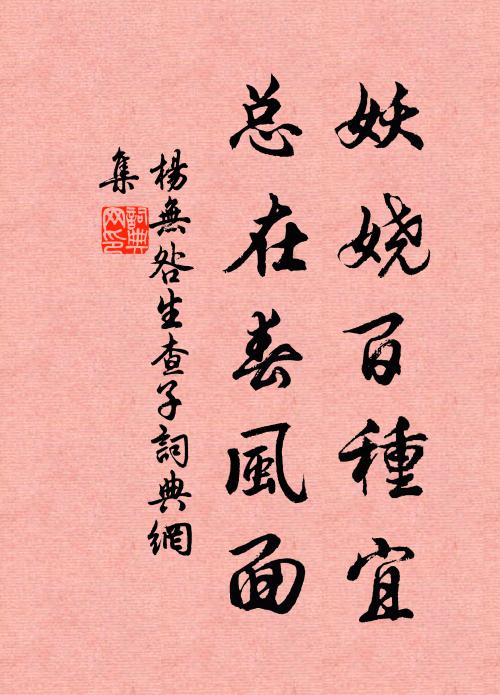 妖娆百種宜
总在春風面
楊無咎生查子詞典網
集
詞典
网印